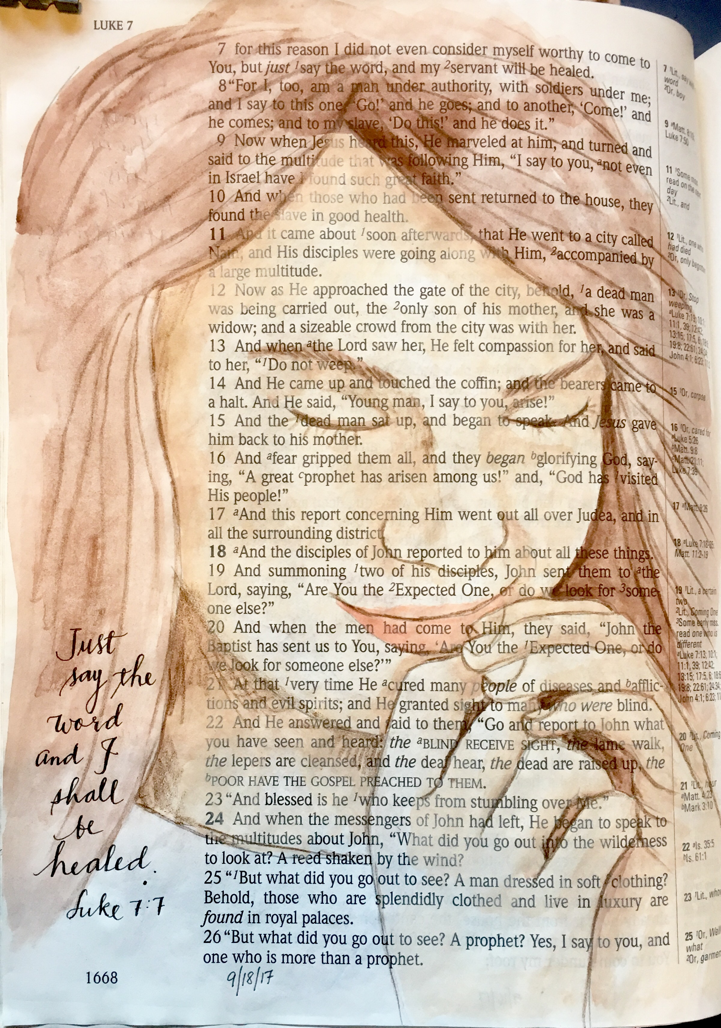 LUKE 7
7 for this reason I did not even consider myself worthy to come to
You, but just ¹say the word, and my ²servant will be healed.
8 "For I, too, am a man under authority, with soldiers under me;
and I say to this one, 'Go!' and he goes; and to another, 'Come!' and
he comes; and to my slave, 'Do this!' and he does it."
9 Now when Jesus heard this, He marveled at him, and turned and
said to the multitude that was following Him, "I say to you, ᵃnot even
in Israel have I found such great faith."
10 And when those who had been sent returned to the house, they
found the slave in good health.
11 And it came about ¹soon afterwards, that He went to a city called
Nain, and His disciples were going along with Him, ²accompanied by
a large multitude.
12 Now as He approached the gate of the city, behold, ¹a dead man
was being carried out, the ²only son of his mother, and she was a
widow; and a sizeable crowd from the city was with her.
13 And when ᵃthe Lord saw her, He felt compassion for her, and said
to her, "¹Do not weep."
14 And He came up and touched the coffin; and the bearers came to
a halt. And He said, "Young man, I say to you, arise!"
15 And the ¹dead man sat up, and began to speak. And Jesus gave
him back to his mother.
16 And ᵃfear gripped them all, and they began ᵇglorifying God, say-
ing, "A great ᶜprophet has arisen among us!" and, "God has ¹visited
His people!"
17 ᵃAnd this report concerning Him went out all over Judea, and in
all the surrounding district.
18 ᵃAnd the disciples of John reported to him about all these things.
19 And summoning ¹two of his disciples, John sent them to ᵃthe
Lord, saying, "Are You the ²Expected One, or do we look for ³some-
one else?"
20 And when the men had come to Him, they said, "John the
Baptist has sent us to You, saying, 'Are You the ¹Expected One, or do
we look for someone else?'"
21 At that ¹very time He ᵃcured many people of diseases and ᵇafflic-
tions and evil spirits; and He granted sight to many who were blind.
22 And He answered and said to them, "Go and report to John what
you have seen and heard: the ᵃBLIND RECEIVE SIGHT, the lame walk,
the lepers are cleansed, and the deaf hear, the dead are raised up, the
ᵇPOOR HAVE THE GOSPEL PREACHED TO THEM.
23 "And blessed is he ¹who keeps from stumbling over Me."
24 And when the messengers of John had left, He began to speak to
the multitudes about John, "What did you go out into the wilderness
to look at? A reed shaken by the wind?
25 "¹But what did you go out to see? A man dressed in soft ¹clothing?
Behold, those who are splendidly clothed and live in luxury are
found in royal palaces.
26 "But what did you go out to see? A prophet? Yes, I say to you, and
one who is more than a prophet.
Just
say the
word
and I
shall
be
healed.
Luke 7:7
1668
9/18/17
word
²Or, boy
9 ᵃMatt.
Luke 7:50
read on the
day
²Lit., and
had died
²Or, only
15 ¹Or, corpse
ᵃLuke 5:26
ᵇMatt. 9:8
Matt. 11:2-19
read one who is
different
ᵃLuke 7:13
11:1, 39; 12:42
13:15; 17:5
19:8; 22:61; 24:34
John 4:1
22 ᵃIs. 35:5
ᵇIs. 61:1
23 ¹Lit.,
25 ¹Or,
what
²Or,